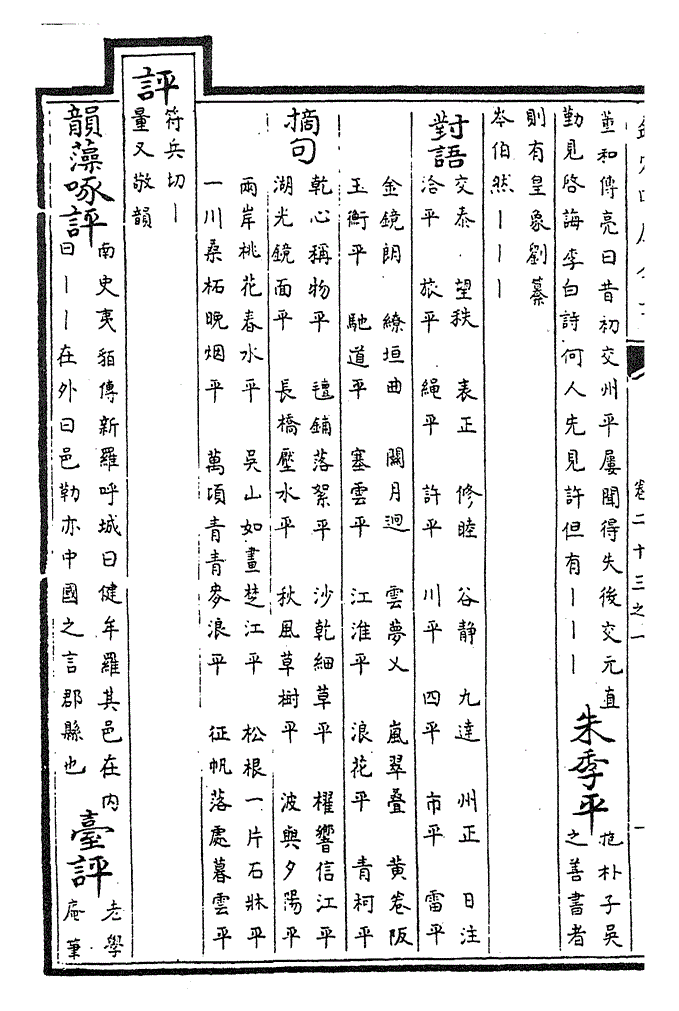 卷二十三之一
蓳和傳亮曰昔初交州平屢聞得失後交元直
勤見啓誨李白詩何人先見許但有丨丨丨
朱季平
抱朴子吳
之善書者
則有皇象劉纂
岑伯然丨丨丨
對語
交泰 望秩 表正 修睦 谷静 九達 州正 日注
洽平 旅平 繩平 許平 川平 四平 市平 雷平
金鏡朗 繚垣曲 關月迥 雲夢乂 嵐翠叠 黄卷阪
玉衡平 馳道平 塞雲平 江淮平 浪花平 青柯平
摘句
乾心稱物平 氊鋪落絮平 沙乾細草平 櫂響信江平
湖光鏡面平 長橋壓水平 秋風草樹平 波與夕陽平
兩岸桃花春水平 吳山如畫楚江平 松根一片石牀平
一川桑柘晚烟平 萬頃青青麥浪平 征帆落處暮雲平
評
符兵切丨
量又敬韻
韻藻啄評
南史夷貊傳新羅呼城曰健牟羅其邑在内
曰丨丨在外曰邑勒亦中國之言郡縣也
臺評
老學
庵筆